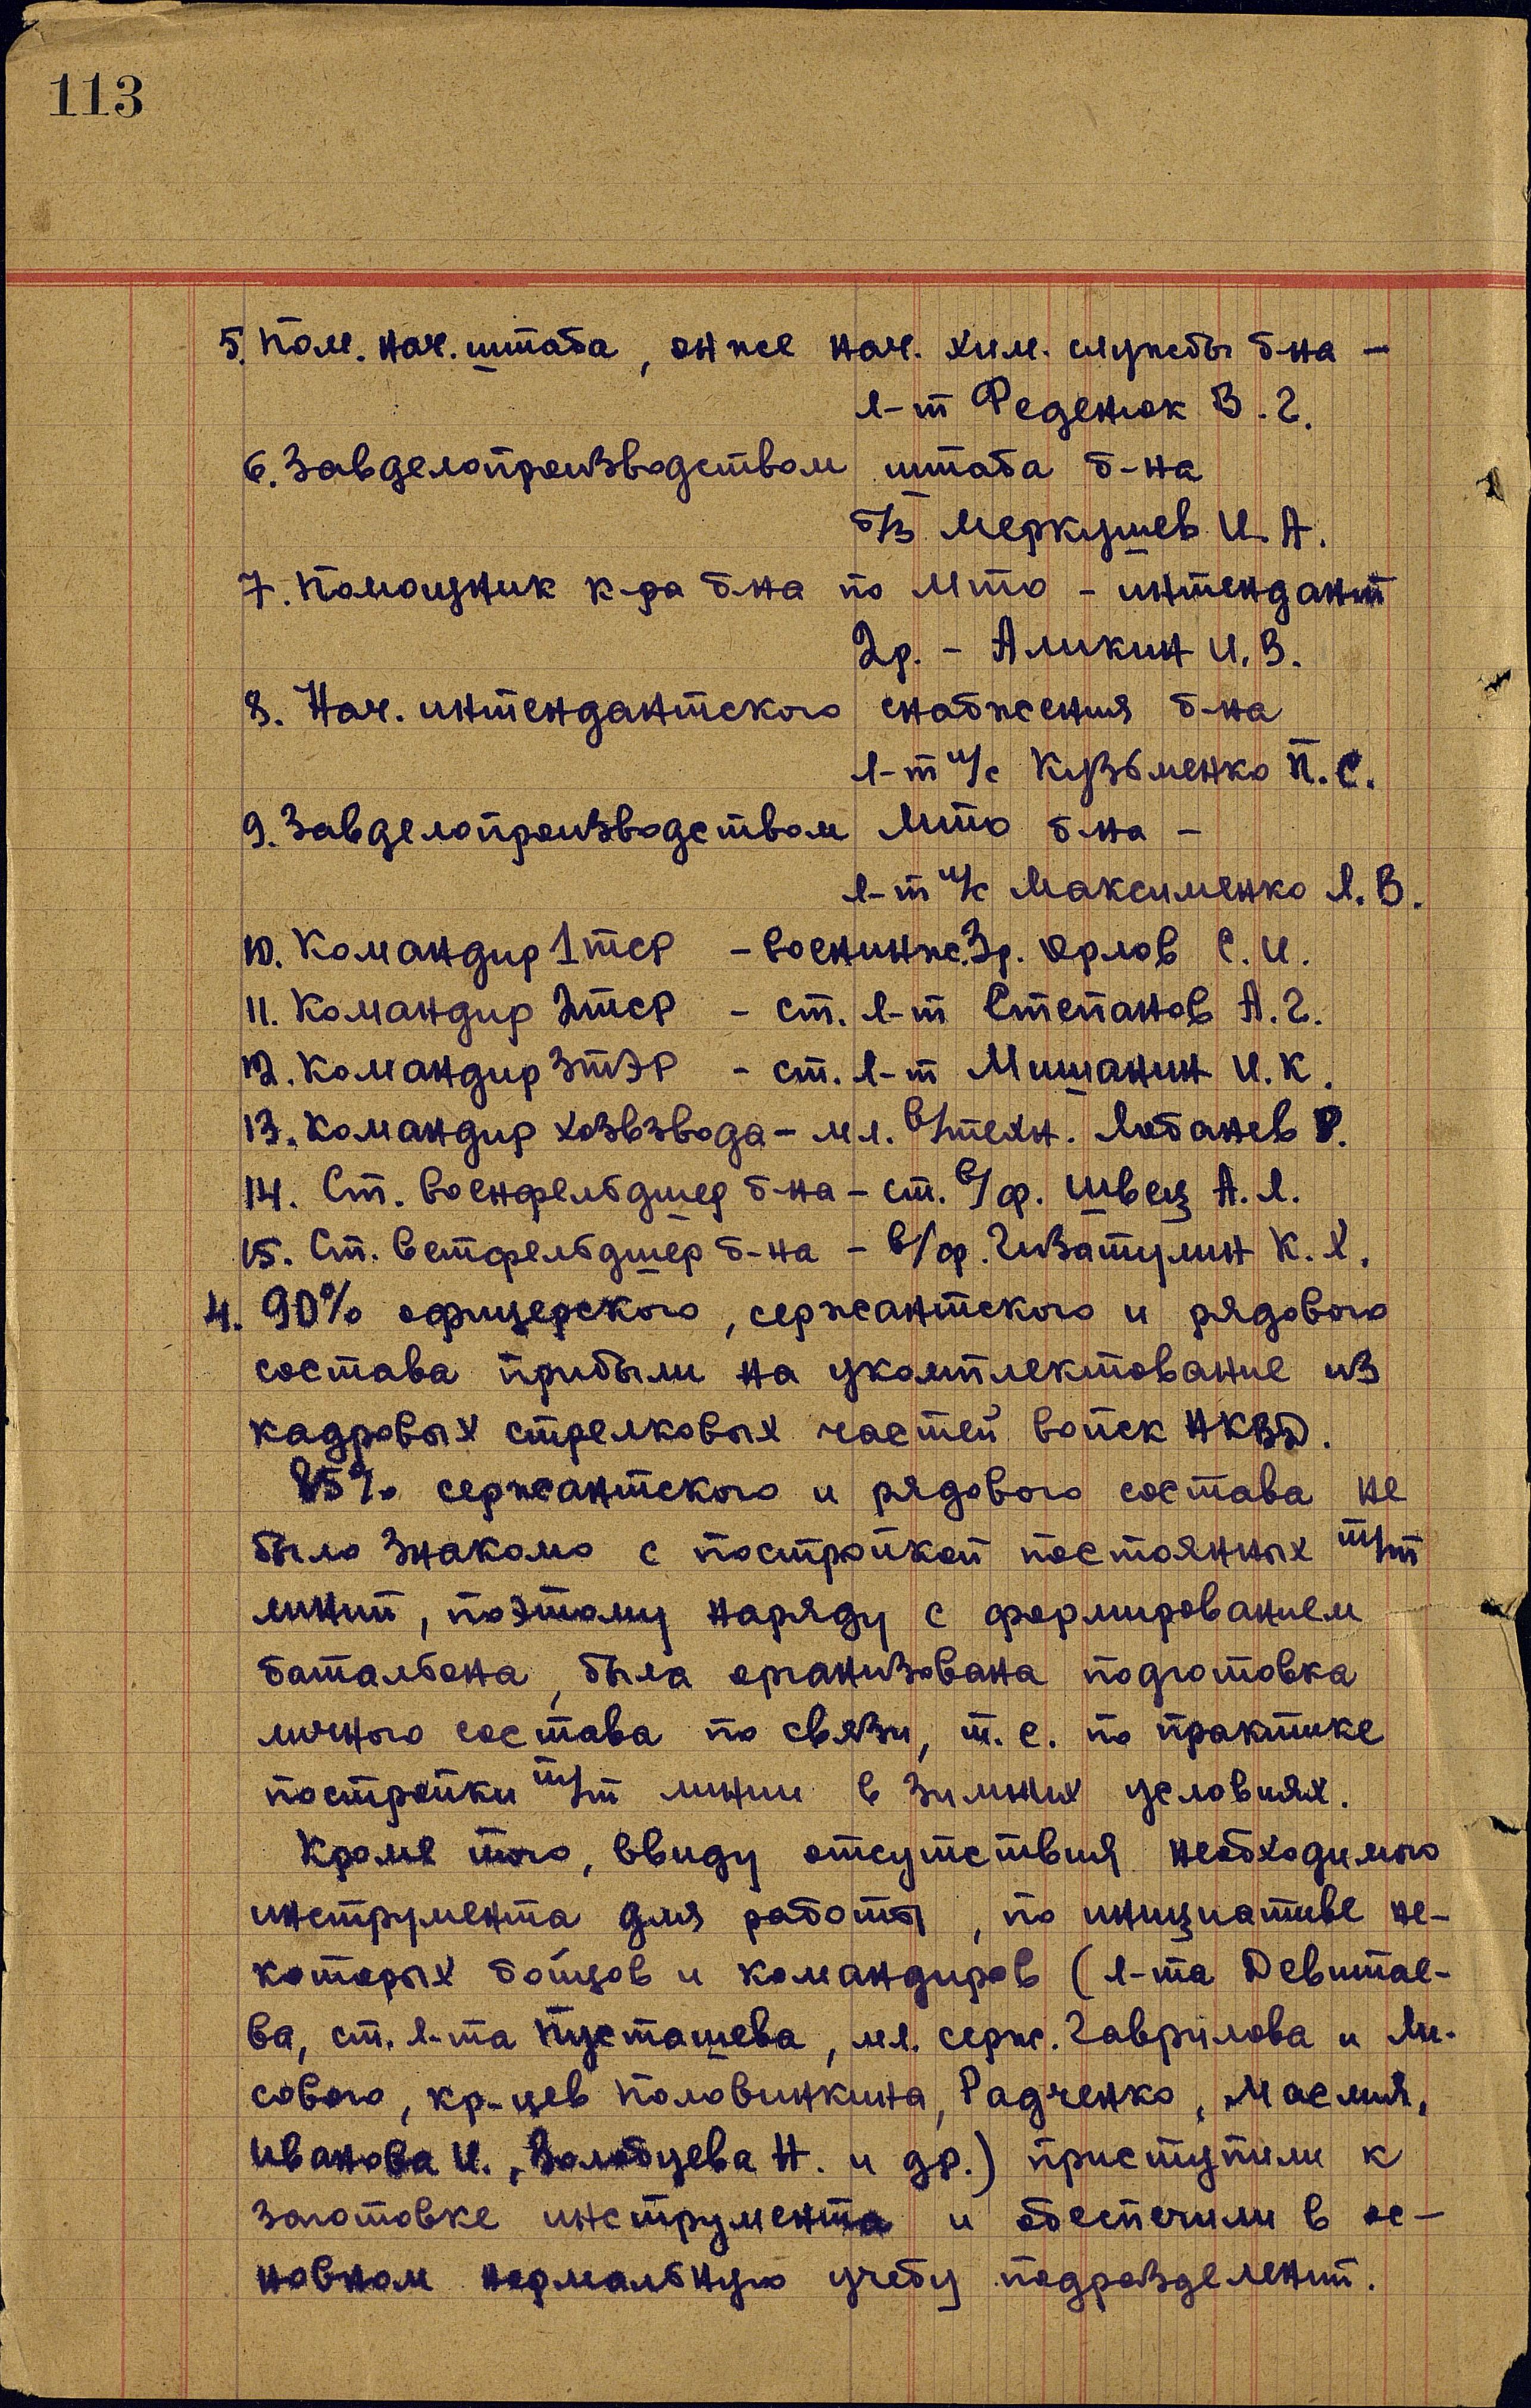 113
5. Пом. нач. штаба, он же нач. хим. службы б-на –
л-т Феденюк В. Г.
6. Завделопроизводством штаба б-на
б/з Меркушев И. А.
7. Помощник к-ра б-на по МТО – интендант
2 р. – Аликин И. В.
8. Нач. интендантского снабжения б-на
л-т и/с Кузьменко П. С.
9. Завделопроизводством МТО б-на –
л-т и/с Максименко Л. В.
10. Командир 1 ТСР – военинж. 3 р. Орлов С. И.
11. Командир 2 ТСР – ст. л-т Степанов А. Г.
12. Командир 3 ТЭР – ст. л-т Мишанин И. К.
13. Командир хозвзвода – мл. в/техн. Лобанев Р.
14. Ст. военфельдшер б-на – ст. в/ф. Швец А. Л.
15. Ст. ветфельдшер б-на – в/ф. Гизатулин К. Х.
4. 90% офицерского, сержантского и рядового
состава прибыли на укомплектование из
кадровых стрелковых частей войск НКВД.
85% сержантского и рядового состава не
было знакомо с постройкой постоянных т/т
линий, поэтому наряду с формированием
батальона, была организована подготовка
личного состава по связи, т. е. по практике
постройки т/т линии в зимних условиях.
Кроме того, ввиду отсутствия необходимого
инструмента для работы, по инициативе не-
которых бойцов и командиров (л-та Девитае-
ва, ст. л-та Пусташева, мл. серж. Гаврилова и Ли-
сового, кр-цев Половинкина, Радченко, Маслия,
Иванова И., Волобуева Н. и др.) приступили к
заготовке инструмента и обеспечили в ос-
новном нормальную учебу подразделений.